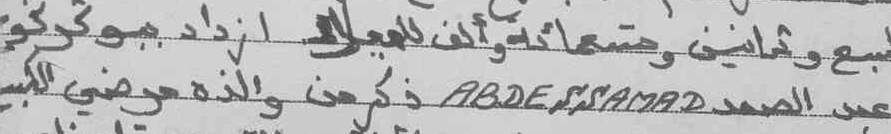 سبع وثمانين وتسعمائة وألف للميلاد ازداد ببوكركو
عبد الصمد ABDESSAMAD ذكر من والده مرضي الكبير